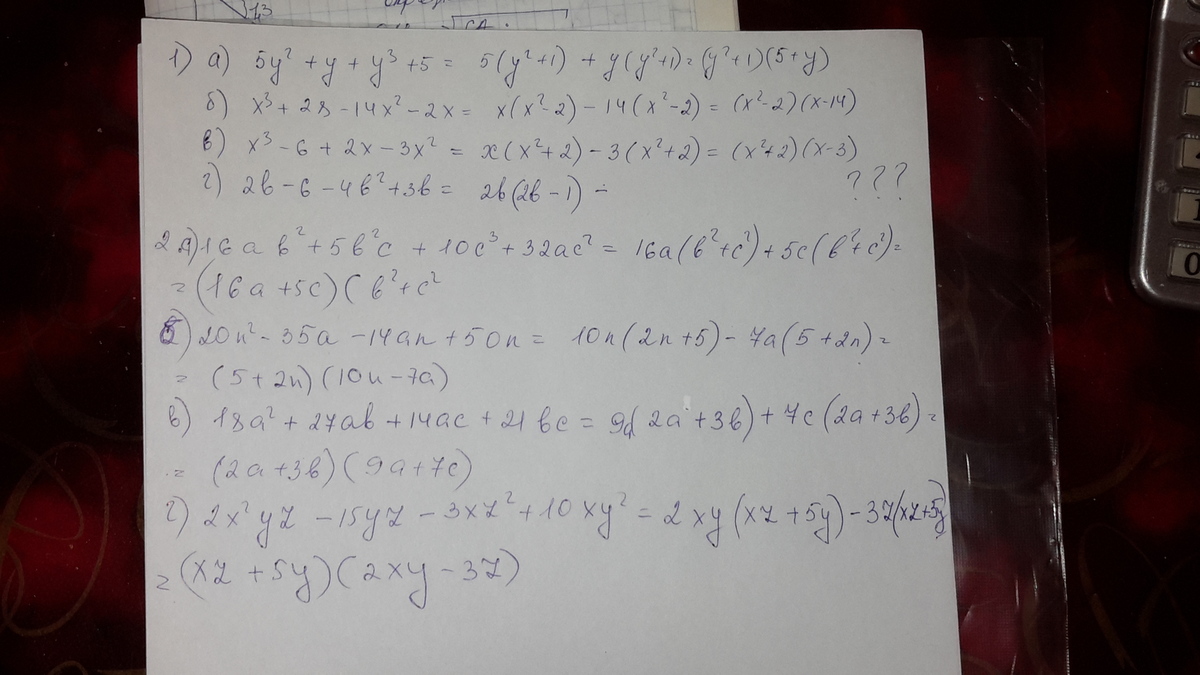 1,3
СА
1) а) 5y² + y + y³ + 5 = 5(y²+1) + y(y²+1) = (y²+1)(5+y)
б) x³ + 28 - 14x² - 2x = x(x²-2) - 14(x²-2) = (x²-2)(x-14)
в) x³ - 6 + 2x - 3x² = x(x²+2) - 3(x²+2) = (x²+2)(x-3)
г) 2в - 6 - 4в² + 3в = 2в(2в - 1) - ???
2 а) 16aв² + 5в²c + 10c³ + 32ac² = 16a(в²+c²) + 5c(в²+c²) =
= (16a + 5c)(в²+c²
б) 20n² - 35a - 14an + 50n = 10n(2n+5) - 7a(5+2n) =
= (5+2n)(10n-7a)
в) 18a² + 27aв + 14ac + 21вc = 9a(2a+3в) + 7c(2a+3в) =
= (2a+3в)(9a+7c)
г) 2x²yz - 15yz - 3xz² + 10xy² = 2xy(xz+5y) - 3z(xz+5y)
= (xz + 5y)(2xy - 3z)
0